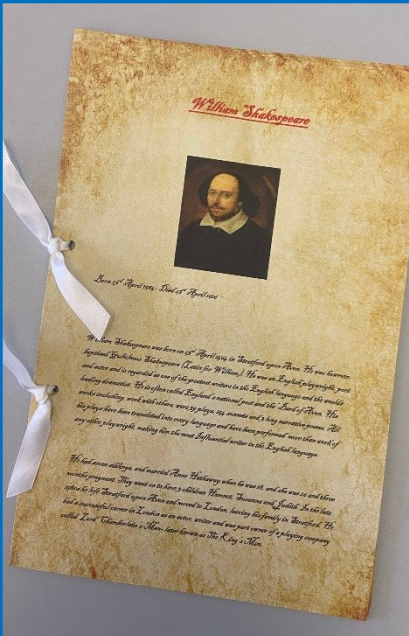 William Shakespeare
Born 23rd April 1564 - Died 23rd April 1616
William Shakespeare was born on 23rd April 1564 in Stratford upon Avon. He was however,
baptised Gulielmus Shakespeare (Latin for William). He was an English playwright, poet
and actor and is regarded as one of the greatest writers in the English language and the worlds
leading dramatist. He is often called England's national poet and the Bard of Avon. His
works including work with others were 39 plays, 154 sonnets and 2 long narrative poems. All
his plays have been translated into every language and have been performed more than work of
any other playwright, making him the most Influential writer in the English language.
He had seven siblings, and married Anne Hathaway when he was 18, and she was 26 and three
months pregnant. They went on to have 3 children Hamnet, Susanna and Judith. In the late
he left Stratford upon Avon and moved to London, leaving his family in Stratford. He
had a successful career in London as an actor, writer and was part owner of a playing company
called Lord Chamberlain's Men; later known as The King's Men.